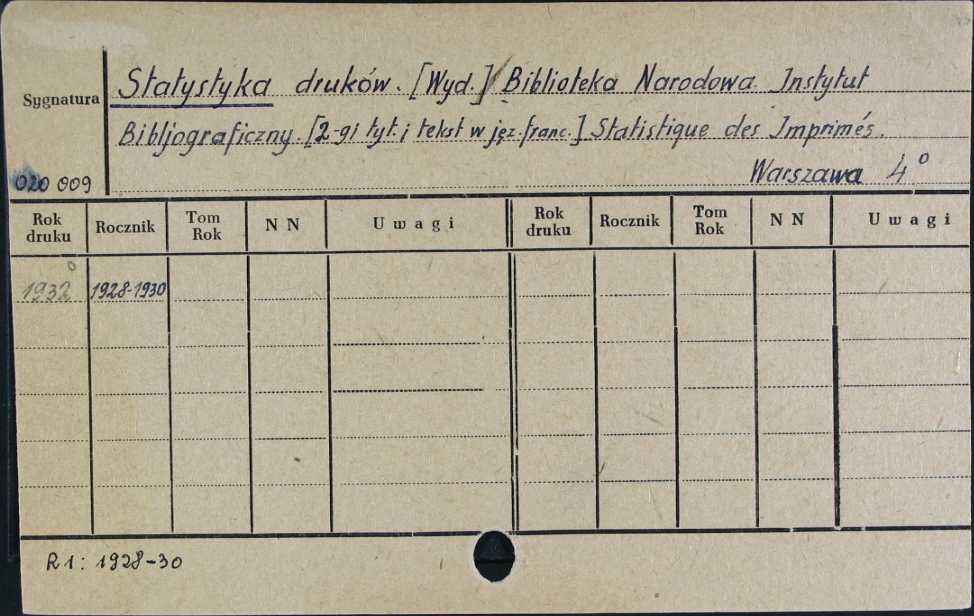 Statystyka druków. [Wyd.] Biblioteka Narodowa. Instytut
Sygnatura
Bibljograficzny. [2-gi tyt. i tekst w jęz. franc.] Statistique des Imprimés.
020 009
Warszawa 4°
Rok druku Rocznik Tom Rok NN Uwagi Rok druku Rocznik Tom Rok NN Uwagi
1932 1928-1930
R1: 1928-30